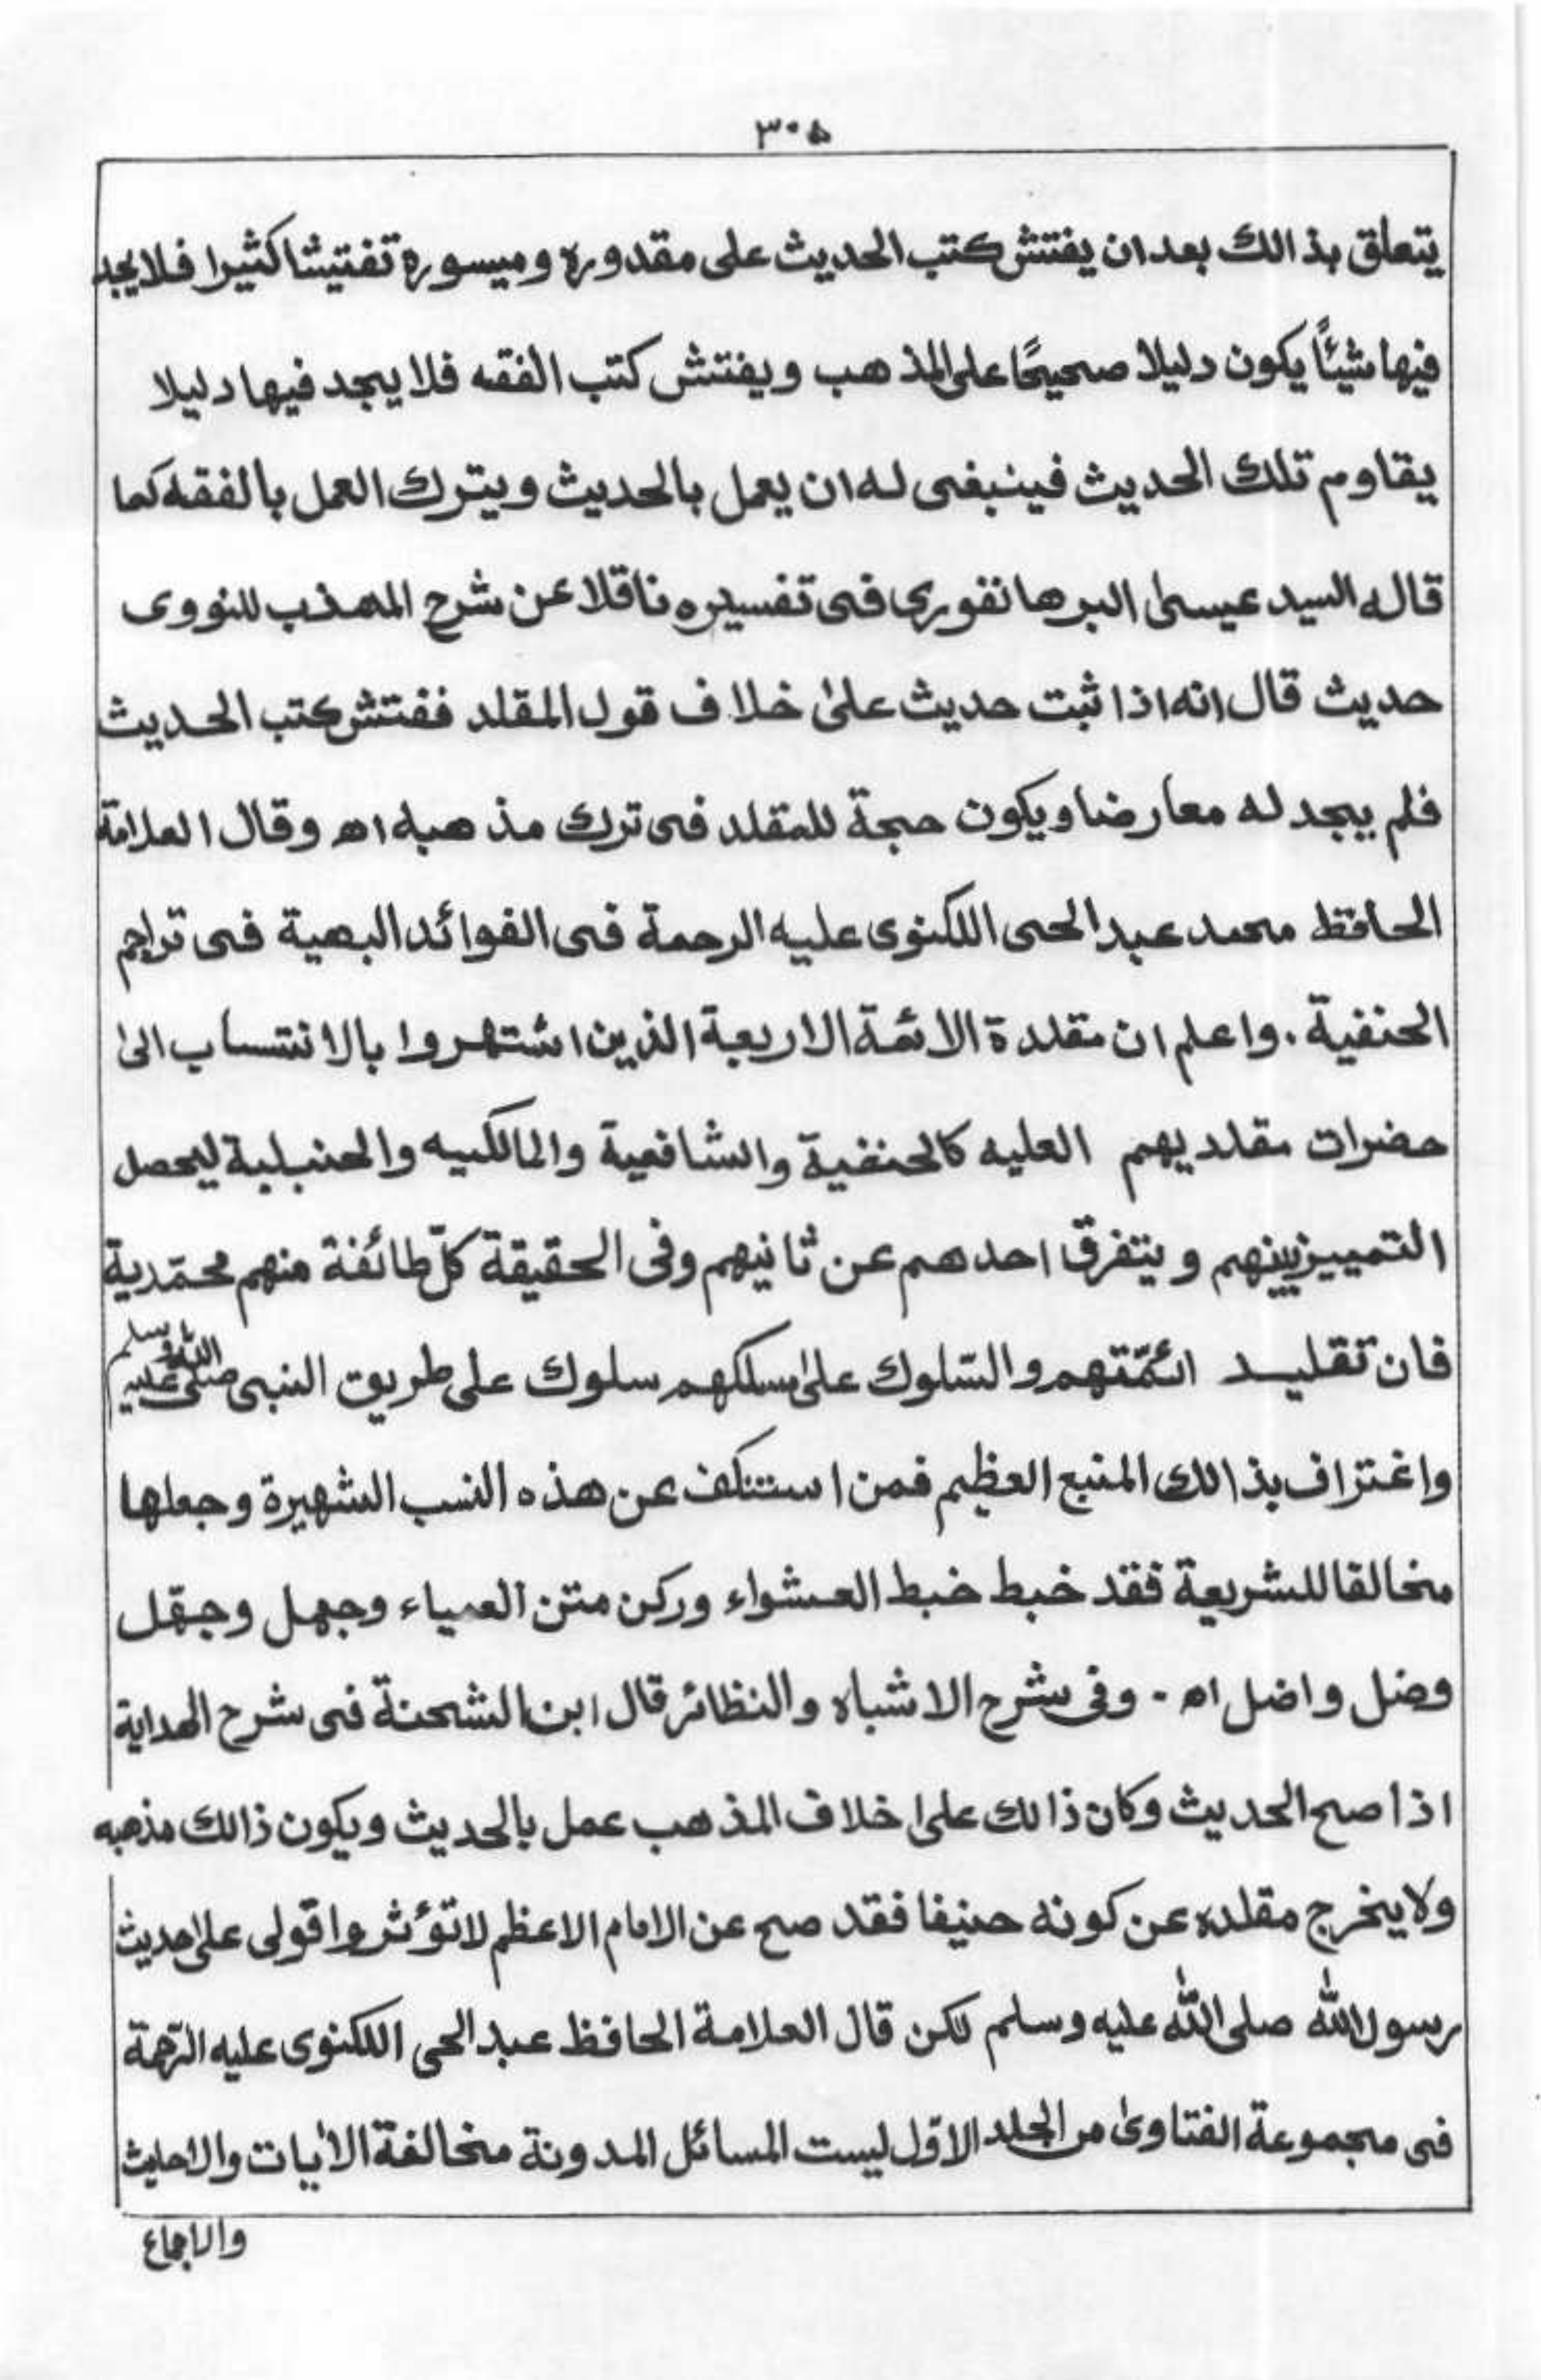 ٣٠۵
يتعلق بذالك بعدان يفتش كتب الحديث على مقدوره وميسوره تفتيشا كثيرا فلايجد
فيها شيئاً يكون دليلا صحيحًا على المذهب ويفتش كتب الفقه فلا يجد فيها دليلا
يقاوم تلك الحديث فينبغى له ان يعمل بالحديث ويترك العمل بالفقه كما
قاله السيد عيسىٰ البرهانفورى فى تفسيره ناقلا عن شرح المهذب للنووى
حديث قال انه اذا ثبت حديث علىٰ خلاف قول المقلد ففتش كتب الحديث
فلم يجد له معارضا ويكون حجة للمقلد فى ترك مذهبه اه وقال العلامة
الحافظ محمد عبد الحى اللكنوى عليه الرحمة فى الفوائد البهية فى تراجم
الحنفية . واعلم ان مقلدة الائمة الاربعة الذين اشتهروا بالانتساب الىٰ
حضرات مقلديهم العليه كالحنفية والشافعية والمالكيه والحنبلية ليحصل
التمييز بينهم ويتفرق احدهم عن ثانيهم وفى الحقيقة كلّ طائفة منهم محمّدية
فان تقليد ائمّتهم والسّلوك علىٰ مسلكهم سلوك على طريق النبى صلى الله عليه وسلم
واغتراف بذالك المنبع العظيم فمن استنكف عن هذه النسب الشهيرة وجعلها
مخالفا للشريعة فقد خبط خبط العشواء وركن متن العمياء وجهل وجهّل
وضل واضل اه - وفى شرح الاشباه والنظائر قال ابن الشحنة فى شرح الهداية
اذا صح الحديث وكان ذالك علىٰ خلاف المذهب عمل بالحديث ويكون ذالك مذهبه
ولا يخرج مقلده عن كونه حنيفا فقد صح عن الامام الاعظم لا تؤثروا قولى علىٰ حديث
رسول الله صلى الله عليه وسلم لكن قال العلامة الحافظ عبد الحى اللكنوى عليه الرّحمة
فى مجموعة الفتاوىٰ من الجلد الاوّل ليست المسائل المدونة مخالفة الأيات والاحاديث
والاجماع